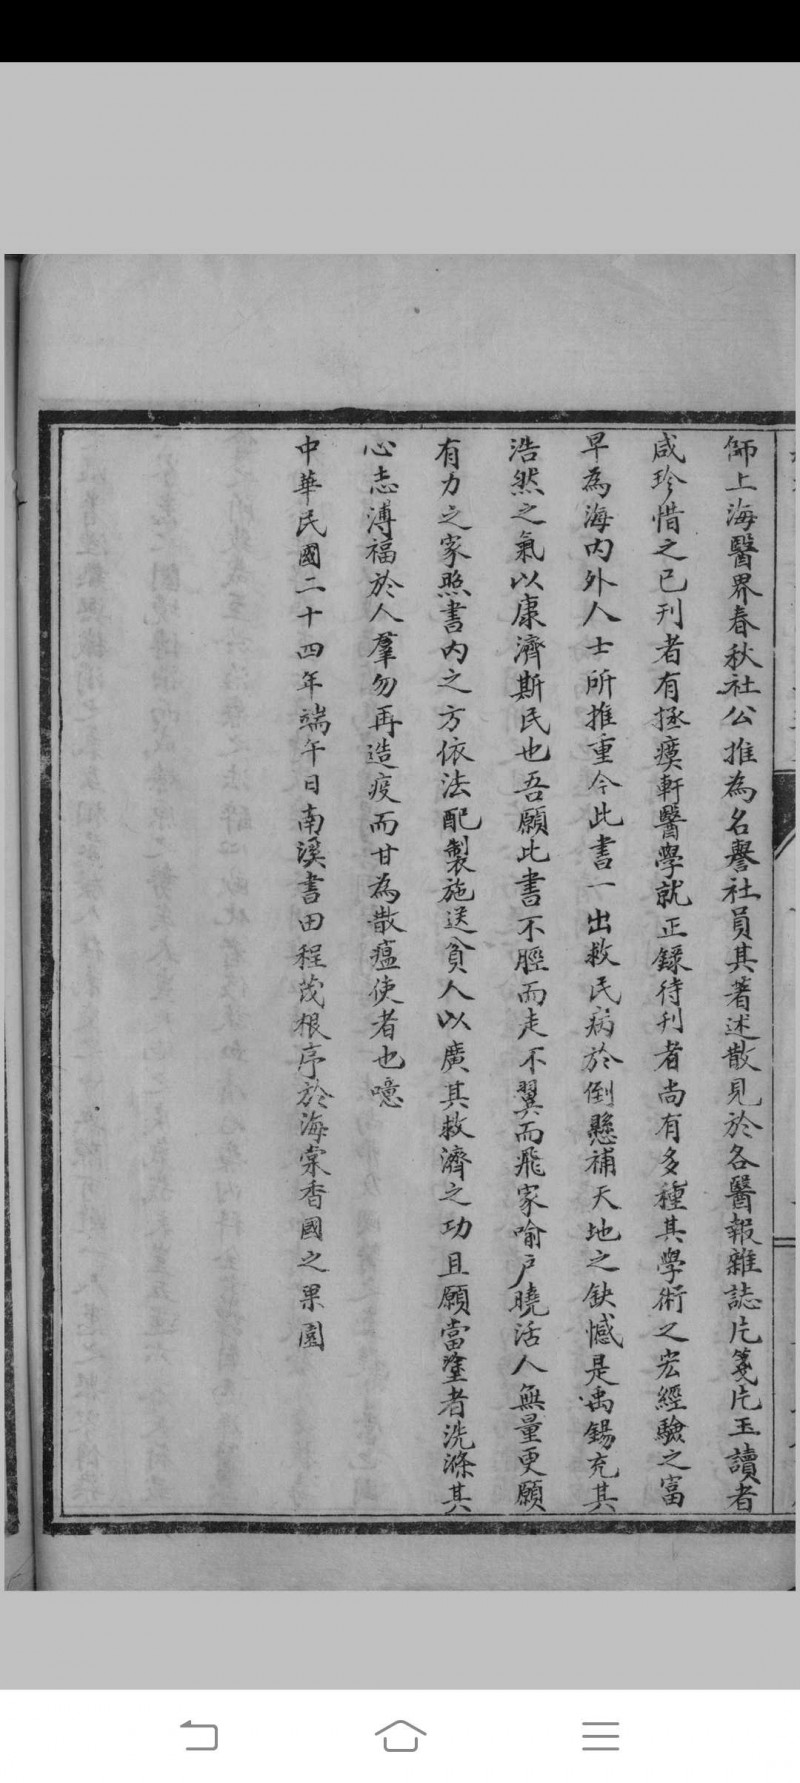 師上海醫界春秋社公推為名譽社員其著述散見於各醫報雜誌片箋片玉讀者
咸珍惜之已刊者有拯瘼軒醫學就正錄待刊者尚有多種其學術之宏經驗之富
早為海內外人士所推重今此書一出救民病於倒懸補天地之缺憾是禹錫充其
浩然之氣以康濟斯民也吾願此書不脛而走不翼而飛家喻戶曉活人無量更願
有力之家照書內之方依法配製施送貧人以廣其救濟之功且願當塗者洗滌其
心志溥福於人羣勿再造疫而甘為散瘟使者也噫
中華民國二十四年端午日南溪書田程茂根序於海棠香國之果園